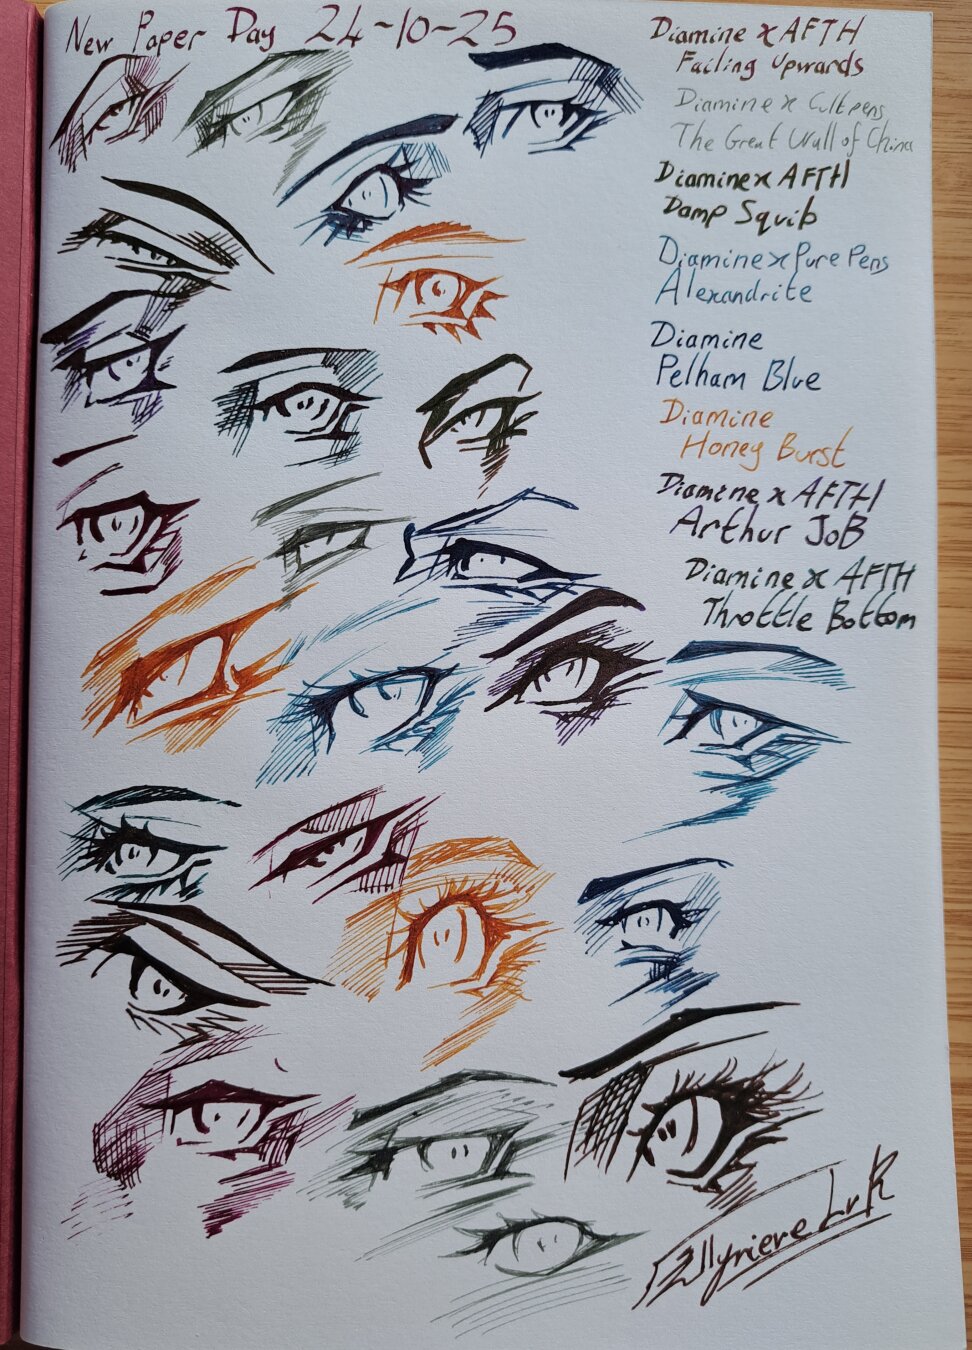 New Paper Day 24-10-25
Diamine x AFTH
Failing Upwards
Diamine x Cult pens
The Great Wall of China
Diamine x AFTH
Damp Squib
Diamine x Pure Pens
Alexandrite
Diamine
Pelham Blue
Diamine
Honey Burst
Diamine x AFTH
Arthur JoB
Diamine x AFTH
Throttle Bottom